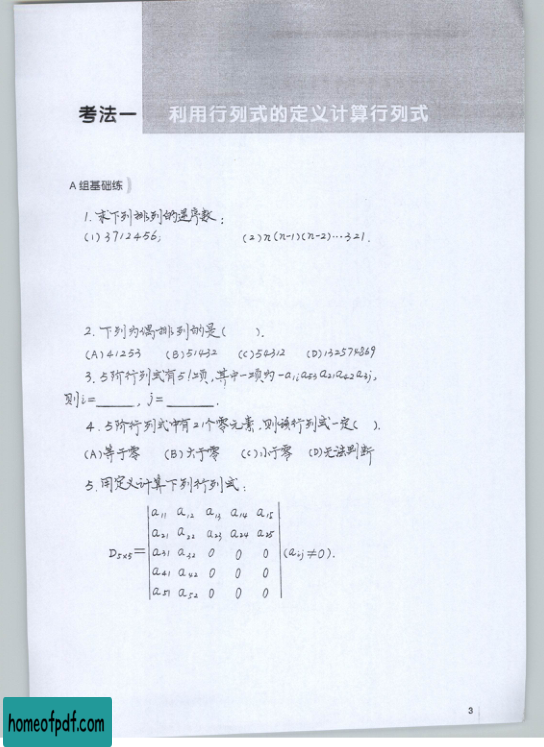 考法一 利用行列式的定义计算行列式
A 组基础练
1. 求下列排列的逆序数：
(1) 3712456; (2) n(n-1)(n-2)…321.
2. 下列为偶排列的是( ).
(A) 41253 (B) 51432 (C) 54312 (D) 132574869
3. 5阶行列式有5!项，其中一项为 -a₁ᵢa₅₃a₂₁a₄₂a₃ⱼ,
则i=______, j=______.
4. 5阶行列式中有21个零元素，则该行列式一定( ).
(A) 等于零 (B) 大于零 (C) 小于零 (D) 无法判断
5. 用定义计算下列行列式：
a₁₁ a₁₂ a₁₃ a₁₄ a₁₅
a₂₁ a₂₂ a₂₃ a₂₄ a₂₅
D₅ₓ₅= a₃₁ a₃₂ 0 0 0 (aᵢⱼ≠0).
a₄₁ a₄₂ 0 0 0
a₅₁ a₅₂ 0 0 0
3
homeofpdf.com